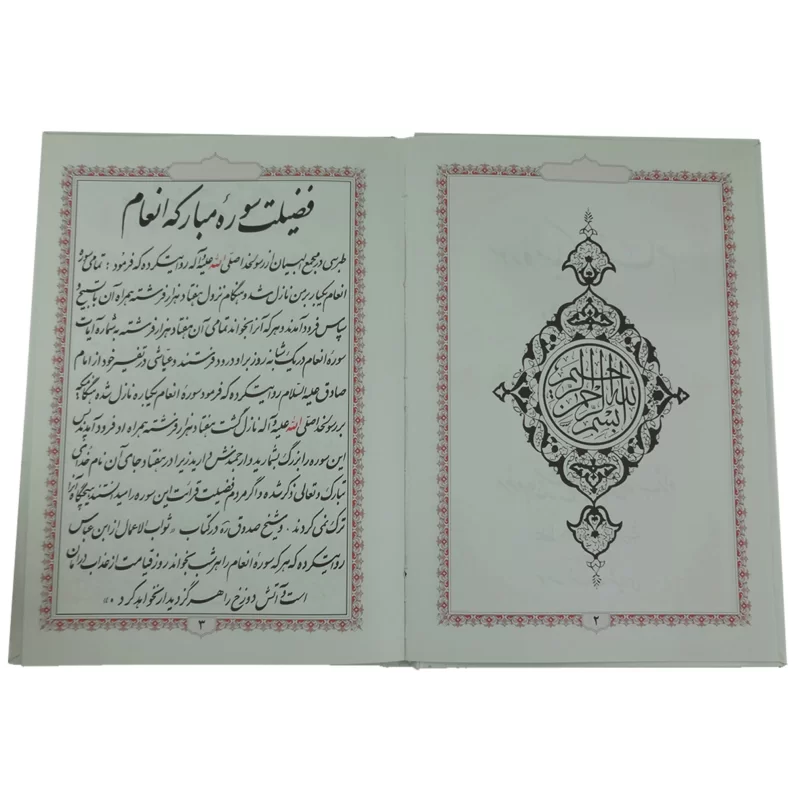 بسم الله الرحمن الرحیم
۲
فضیلت سورهٔ مبارکه انعام
طبرسی در مجمع البیان از رسولخدا صلی الله علیه و آله روایت کرده که فرمود : تمامی سوره
انعام یکبار بر من نازل شد و هنگام نزول هفتاد هزار فرشته همراه آن با تسبیح و
سپاس فرود آمدند و هر که آنرا بخواند تمامی آن هفتاد هزار فرشته به شماره آیات
سورهٔ انعام در یک شبانه روز بر او درود فرستند و عیاشی در تفسیر خود از امام
صادق علیه السلام روایت کرده که فرمود سورهٔ انعام یکباره نازل شد هنگامیکه
بر رسولخدا صلی الله علیه و آله نازل گشت هفتاد هزار فرشته همراه او فرود آمدند پس
این سوره را بزرگ بشمارید و ارجمندش دارید زیرا در هفتاد جای آن نام خدای
تبارک و تعالی ذکر شده و اگر مردم فضیلت قرائت این سوره را میدانستند هیچگاه آنرا
ترک نمی کردند . و شیخ صدوق ره در کتاب « ثواب الاعمال از ابن عباس
روایت کرده که هر که سورهٔ انعام را هر شب بخواند روز قیامت از عذاب در امان
است و آتش دوزخ را هرگز دیدار نخواهد کرد . »
۳